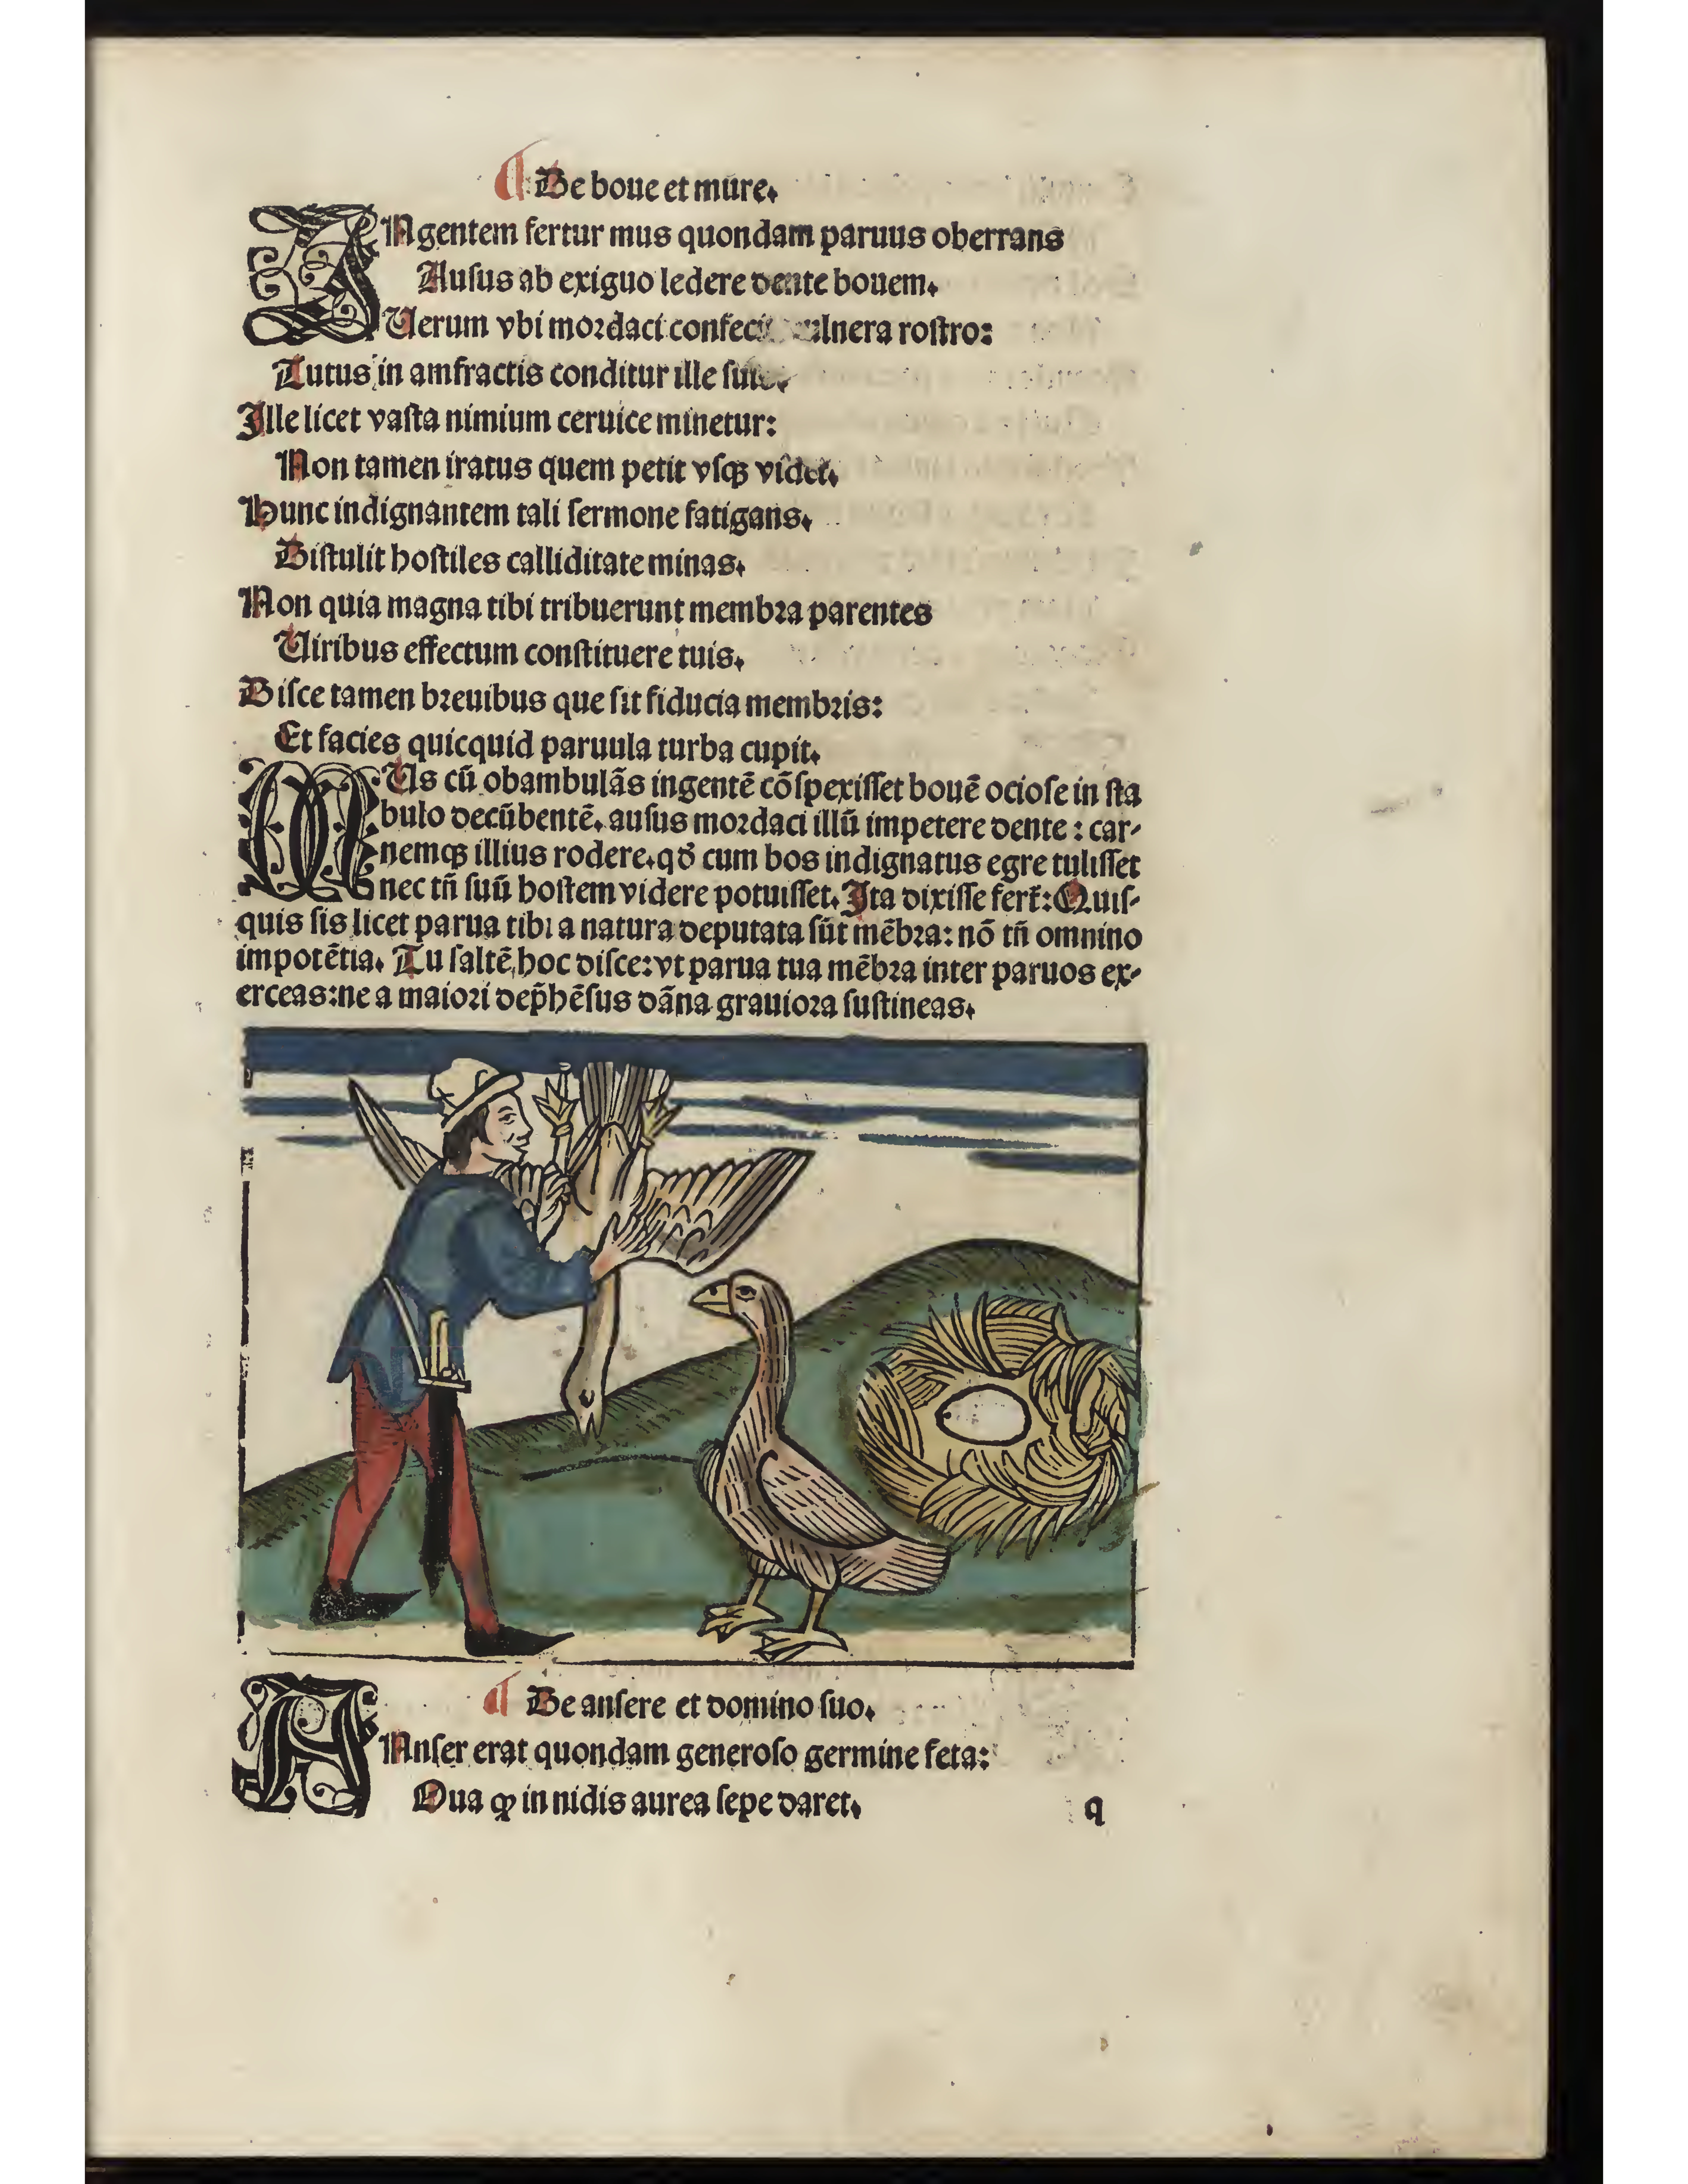 ¶ De boue et mure.
INgentem fertur mus quondam paruus oberrans
Auſus ab exiguo ledere dente bouem.
Uerum vbi moꝛdaci confecit vulnera roſtro:
Tutus in amfractis conditur ille
Ille licet vaſta nimium ceruice minetur:
Non tamen iratus quem petit vſqꝫ videt.
Hunc indignantem tali ſermone fatigans.
Diſtulit hoſtiles calliditate minas.
Non quia magna tibi tribuerunt membꝛa parentes
Uiribus effectum conſtituere tuis.
Diſce tamen bꝛeuibus que ſit fiducia membꝛis:
Et facies quicquid paruula turba cupit.
MUs cū obambulãs ingentē cōſpexiſſet bouē ocioſe in ſta
bulo decūbentē. auſus moꝛdaci illū impetere dente : car-
nemqꝫ illius rodere. qď cum bos indignatus egre tuliſſet
nec tñ ſuū hoſtem videre potuiſſet. Ita dixiſſe fert̃: Quiſ-
quis ſis licet parua tibi a natura deputata ſūt mēbꝛa: nō tñ omnino
impotētia. Tu ſaltē hoc diſce: vt parua tua mēbꝛa inter paruos ex-
erceas: ne a maioꝛi dep̃hēſus dãna grauioꝛa ſuſtineas.
¶ De anſere et domino ſuo.
ANſer erat quondam generoſo germine feta:
Oua ꝙ in nidis aurea ſepe daret.
q